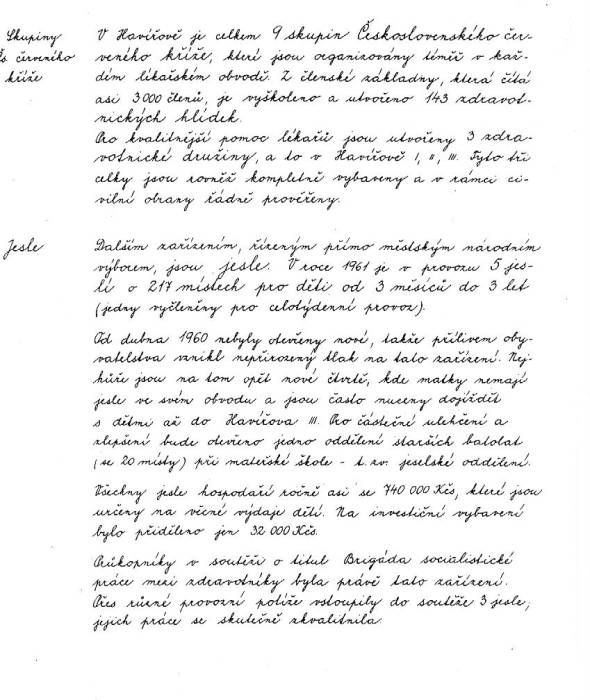 Skupiny
Čs červeného
kříže
V Havířově je celkem 9 skupin Československého čer-
veného kříže, které jsou organizovány téměř v kaž-
dém lékařském obvodě. Z členské základny, která čítá
asi 3000 členů, je vyškoleno a utvořeno 143 zdravot-
nických hlídek.
Pro kvalitnější pomoc lékařů jsou utvořeny 3 zdra-
votnické družiny, a to v Havířově I, II, III. Tyto tři
celky jsou rovněž kompletně vybaveny a v rámci ci-
vilní obrany řádně prověřeny.
Jesle
Dalším zařízením, řízeným přímo městským národním
výborem, jsou jesle. V roce 1961 je v provozu 5 jes-
lí o 217 místech pro děti od 3 měsíců do 3 let
(jedny vyčleněny pro celotýdenní provoz).
Od dubna 1960 nebyly otevřeny nové, takže přílivem oby-
vatelstva vznikl nepřirozený tlak na tato zařízení. Nej-
hůře jsou na tom opět nové čtvrtě, kde matky nemají
jesle ve svém obvodu a jsou často nuceny dojíždět
s dětmi až do Havířova III. Pro částečné ulehčení a
zlepšení bude otevřeno jedno oddělení starších batolat
(se 20 místy) při mateřské škole - t. zv. jeselské oddělení.
Všechny jesle hospodaří ročně asi se 740 000 Kčs, které jsou
určeny na věcné výdaje dětí. Na investiční vybavení
bylo přiděleno jen 32 000 Kčs.
Průkopníky v soutěži o titul Brigáda socialistické
práce mezi zdravotníky byla právě tato zařízení.
Přes různé provozní potíže vstoupily do soutěže 3 jesle,
jejich práce se skutečně zkvalitnila.